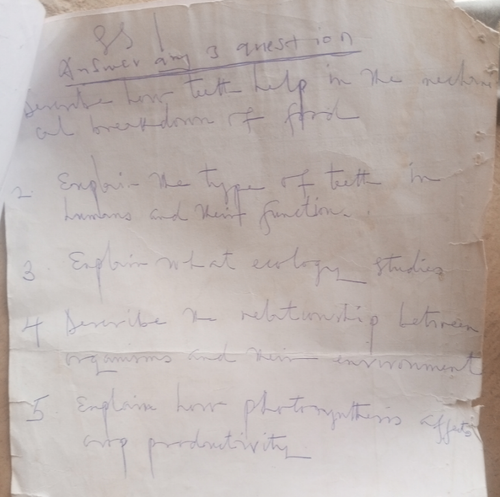 SS 1
Answer any 3 question
Describe how teeth help in the mechani
cal breakdown of food
2. Explain the type of teeth in
humans and their function.
3 Explain what ecology studies
4 Describe the relationship between
organisms and their environment
5 Explain how photosynthesis affects
crop productivity